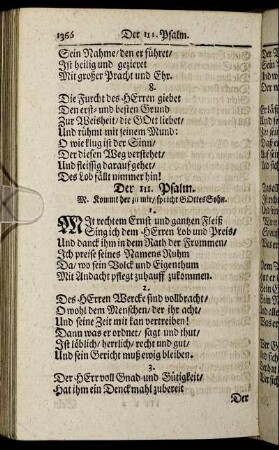 1366 Der 111. Psalm.
Sein Nahme/ den er führet/
Ist heilig und gezieret
Mit großer Pracht und Ehr.
8.
Die Furcht des HErren giebet
Den erst- und besten Grund
Zur Weisheit/ die GOtt liebet/
Und rühmt mit seinem Mund:
O wie klug ist der Sinn/
Der diesen Weg verstehet/
Und fleissig darauf gehet/
Des Lob fällt nimmer hin!
Der 111. Psalm.
M. Kommt her zu mir/ spricht GOttes Sohn.
1.
MIt rechtem Ernst und gantzen Fleiß
Sing ich dem HErren Lob und Preis/
Und danck ihm in dem Rath der Frommen/
Ich preise seines Namens Ruhm
Da/ wo sein Volck und Eigenthum
Mit Andacht pflegt zuhauff zukommen.
2.
Des HErren Wercke sind vollbracht/
O wohl dem Menschen/ der ihr acht/
Und seine Zeit mit kan vertreiben!
Dann was er ordnet/ sagt und thut/
Ist löblich/ herrlich/ recht und gut/
Und sein Gericht muß ewig bleiben.
3.
Der HErr voll Gnad und Gütigkeit/
Hat ihm ein Denckmahl zubereit
Der